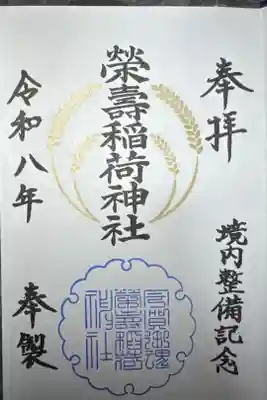 奉拝
境内整備記念
榮壽稲荷神社
令和八年
奉製